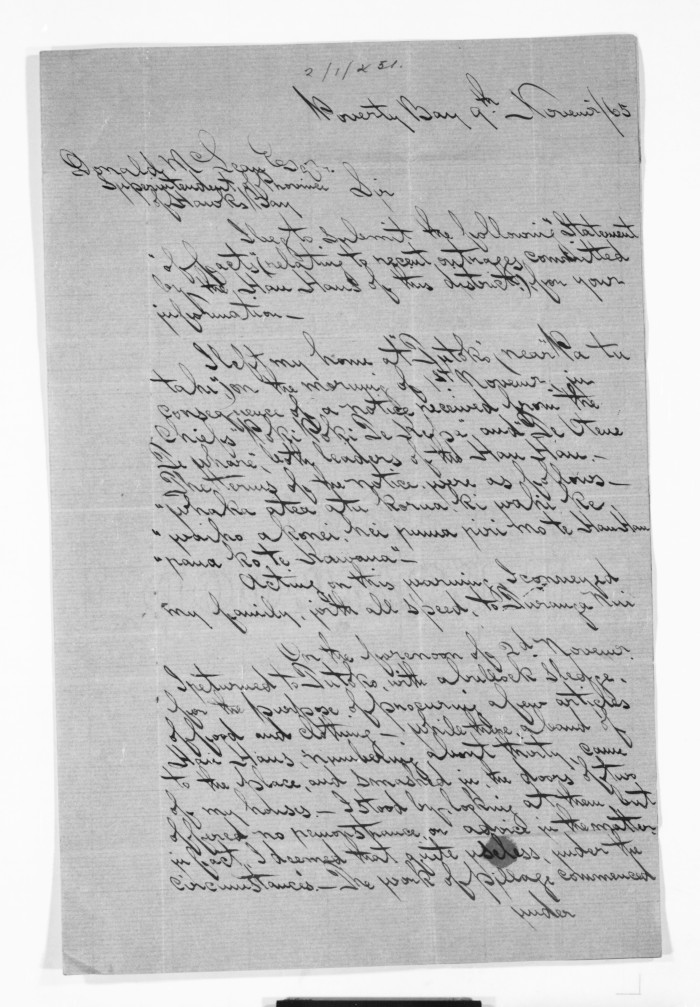 2/1/2 51.
Poverty Bay 9th Novemr/65
Donald McLean Esqr.
Superintendent Province
of Hawkes Bay
Sir
I beg to submit the following "Statement
of facts" relating to recent outrages committed
by the Hau Haus of this district, for your
information —
I left my home at "Tutoko" near "Ka tu
tahi" on the morning of 1st Novemr. in
consequence of a notice received from the
Chiefs and "Te Rene
leaders of the Hau Hau. —
The terms of the notice were as follows —
"
" ki te Kawana" —
Acting on this warning, I conveyed
my family, with all speed, to Turanga nui
On the forenoon of 2d Novemr.
I returned to Tutoko, with a bullock sledge,
for the purpose of procuring a few articles
of food and clothing — while there, a band of
Hau Haus, numbering about thirty, came
to the place, and smashed in, the doors of two
of my houses. — I stood by looking at them, but
offered no remonstrance, or advice in the matter
in fact, I deemed that quite useless, under the
circumstances. — The work of pillage commenced
under